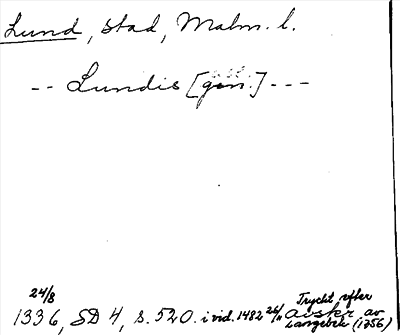 Lund, stad, Malm. l.
-- Lundis [gen.] ---
24/8 Tryckt efter
1336, SD 4, s. 520. i vid. 1482 26/11 avskr. av
Langebek (1756)